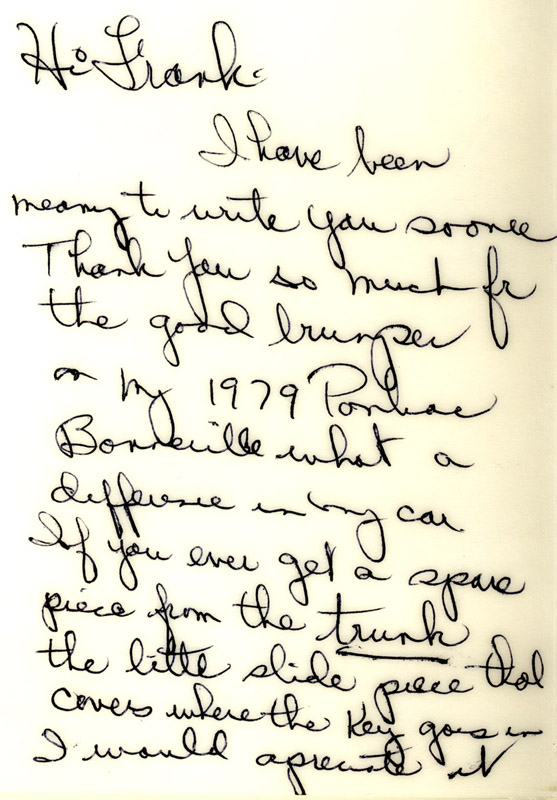 Hi Frank.
I have been
meany to write you soone
Thank you so much fr
the good brumper
on my 1979 Pontiac
Bonneville what a
difference in my car
If you ever get a spare
piece from the trunk
the little slide piece that
covers where the key goes in
I would apreciate it